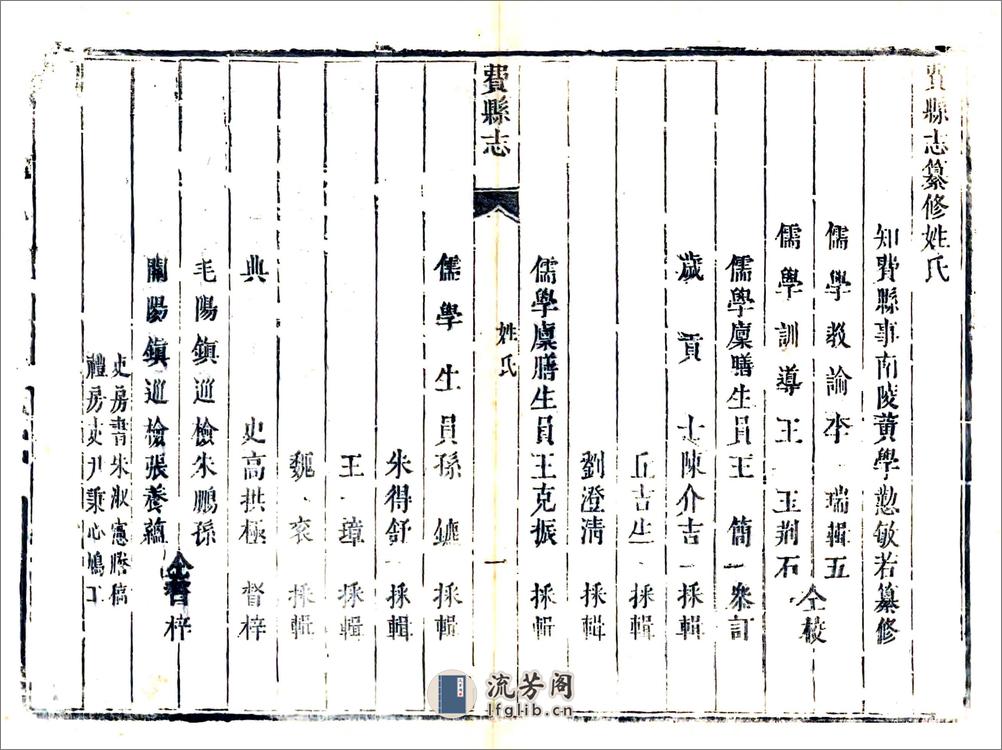 費縣志纂修姓氏
知費縣事南陵黃學懃敏若纂修
儒學教諭李 瑞輯五
儒學訓導王 玉荆石
仝校
儒學廩膳生員王 簡 參訂
歲貢士陳介吉 採輯
丘吉生 採輯
劉澄清 採輯
儒學廩膳生員王克振 採輯
費縣志
姓氏
一
儒學生員孫 採輯
朱得舒 採輯
王 璋 採輯
魏 袞 採輯
典史高拱極 督梓
毛陽鎮巡檢朱鵬孫
關陽鎮巡檢張養蘊
仝督梓
史房書朱淑憲謄稿
禮房吏尹秉心鳩工
流芳阁
lfglib.cn